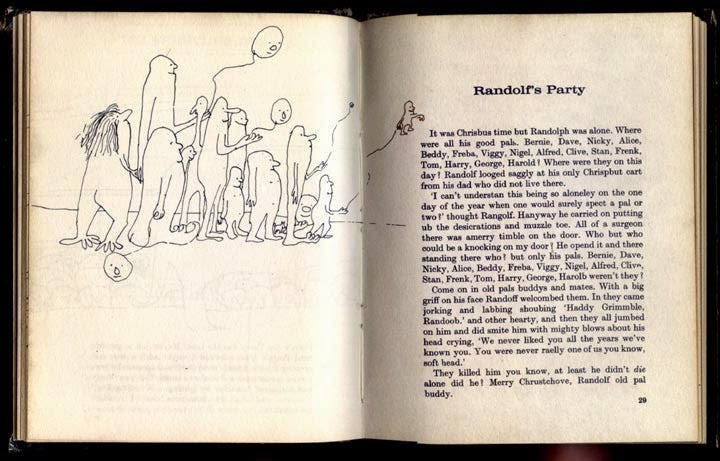 Randolf's Party
It was Chrisbus time but Randolph was alone. Where
were all his good pals. Bernie, Dave, Nicky, Alice,
Beddy, Freba, Viggy, Nigel, Alfred, Clive, Stan, Frenk,
Tom, Harry, George, Harold? Where were they on this
day? Randolf looged saggly at his only Chrispbut cart
from his dad who did not live there.
'I can't understan this being so aloneley on the one
day of the year when one would surely spect a pal or
two?' thought Rangolf. Hanyway he carried on putting
ub the desicrations and muzzle toe. All of a surgeon
there was amerry timble on the door. Who but who
could be a knocking on my door? He opend it and there
standing there who? but only his pals. Bernie, Dave,
Nicky, Alice, Beddy, Freba, Viggy, Nigel, Alfred, Clive,
Stan, Frenk, Tom, Harry, George, Harolb weren't they?
Come on in old pals buddys and mates. With a big
griff on his face Randoff welcombed them. In they came
jorking and labbing shoubing 'Haddy Grimmble,
Randoob.' and other hearty, and then they all jumbed
on him and did smite him with mighty blows about his
head crying, 'We never liked you all the years we've
known you. You were never raelly one of us you know,
soft head.'
They killed him you know, at least he didn't die
alone did he? Merry Chrustchove, Randolf old pal
buddy.
29